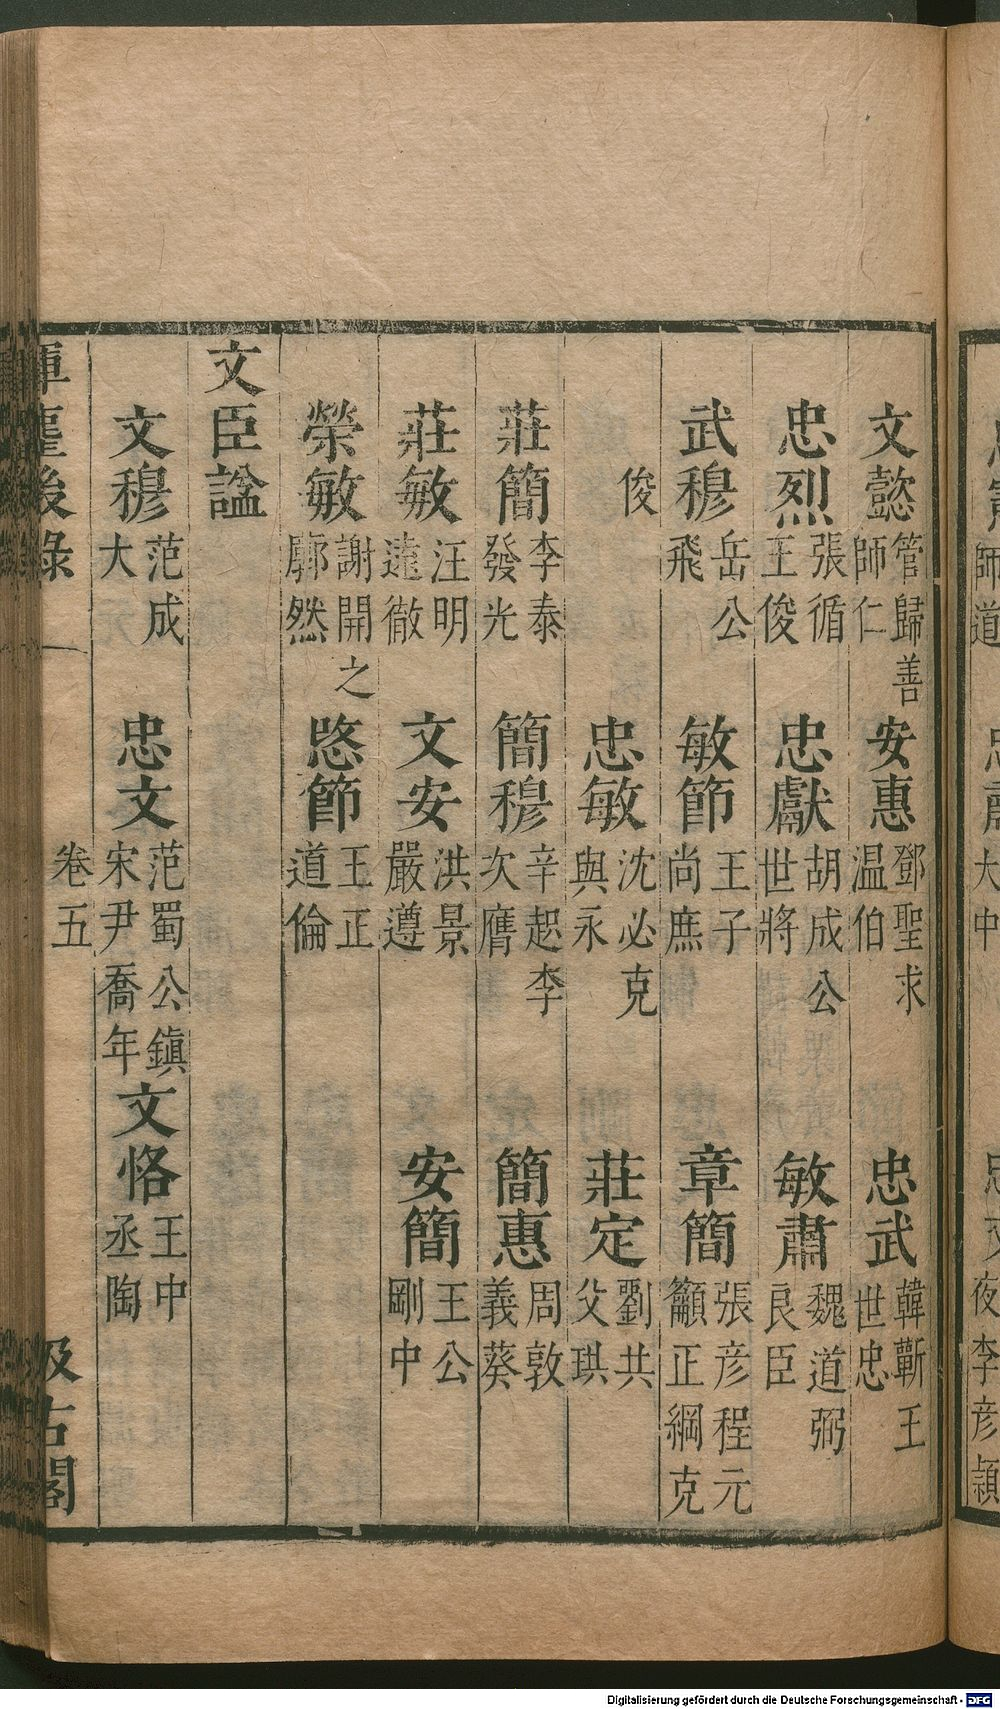 師道 大中 夜李彦頴
文懿 管歸善師仁 安惠 鄧聖求温伯 忠武 韓蘄王世忠
忠烈 張循王俊 忠獻 胡成公世將 敏肅 魏道弼良臣
武穆 岳公飛 敏節 王子尚庶 章簡 張彦程元籲正綱克
俊 忠敏 沈必克與永 莊定 劉共父珙
莊簡 李泰發光 簡穆 辛起李次膺 簡惠 周敦義葵
莊敏 汪明遠徹 文安 洪景嚴遵 安簡 王公剛中
榮敏 謝開之廓然 愍節 王正道倫
文臣謚
文穆 范成大 忠文 范蜀公鎮宋尹喬年 文恪 王中丞陶
揮麈後錄 卷五 汲古閣
Digitalisierung gefördert durch die Deutsche Forschungsgemeinschaft - DFG